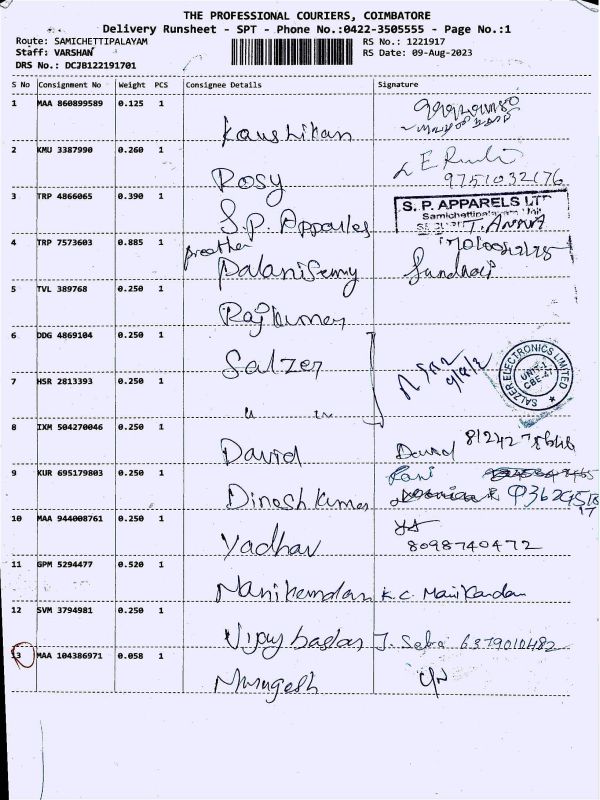 THE PROFESSIONAL COURIERS, COIMBATORE
Delivery Runsheet - SPT - Phone No.:0422-3505555 - Page No.:1
Route: SAMICHETTIPALAYAM
RS No.: 1221917
Staff: VARSHAN
RS Date: 09-Aug-2023
DRS No.: DCJB122191701
S No Consignment No Weight PCS Consignee Details Signature
1 MAA 860899589 0.125 1
Kaushikan
2 KMU 3387990 0.260 1
Rosy
9751032176
3 TRP 4866065 0.390 1
S.P. Apparles
S. P. APPARELS LTD
Samichettipalayam Unit
4 TRP 7573603 0.885 1
brother
Palanisemy
5 TVL 389768 0.250 1
Rajkumar
6 DDG 4869104 0.250 1
Salzer
SALZER ELECTRONICS LIMITED
UNIT-1
CBE-47
7 HSR 2813393 0.250 1
" "
8 IXM 504270046 0.250 1
David David
9 KUR 695179803 0.250 1
Dinesh Kumar
10 MAA 944008761 0.250 1
Yadhav 8098740472
11 GPM 5294477 0.520 1
Manikandan K.C. Manikandan
12 SVM 3794981 0.250 1
Vijay baskar J. Seba 6379010482
13 MAA 104386971 0.058 1
Murugesh